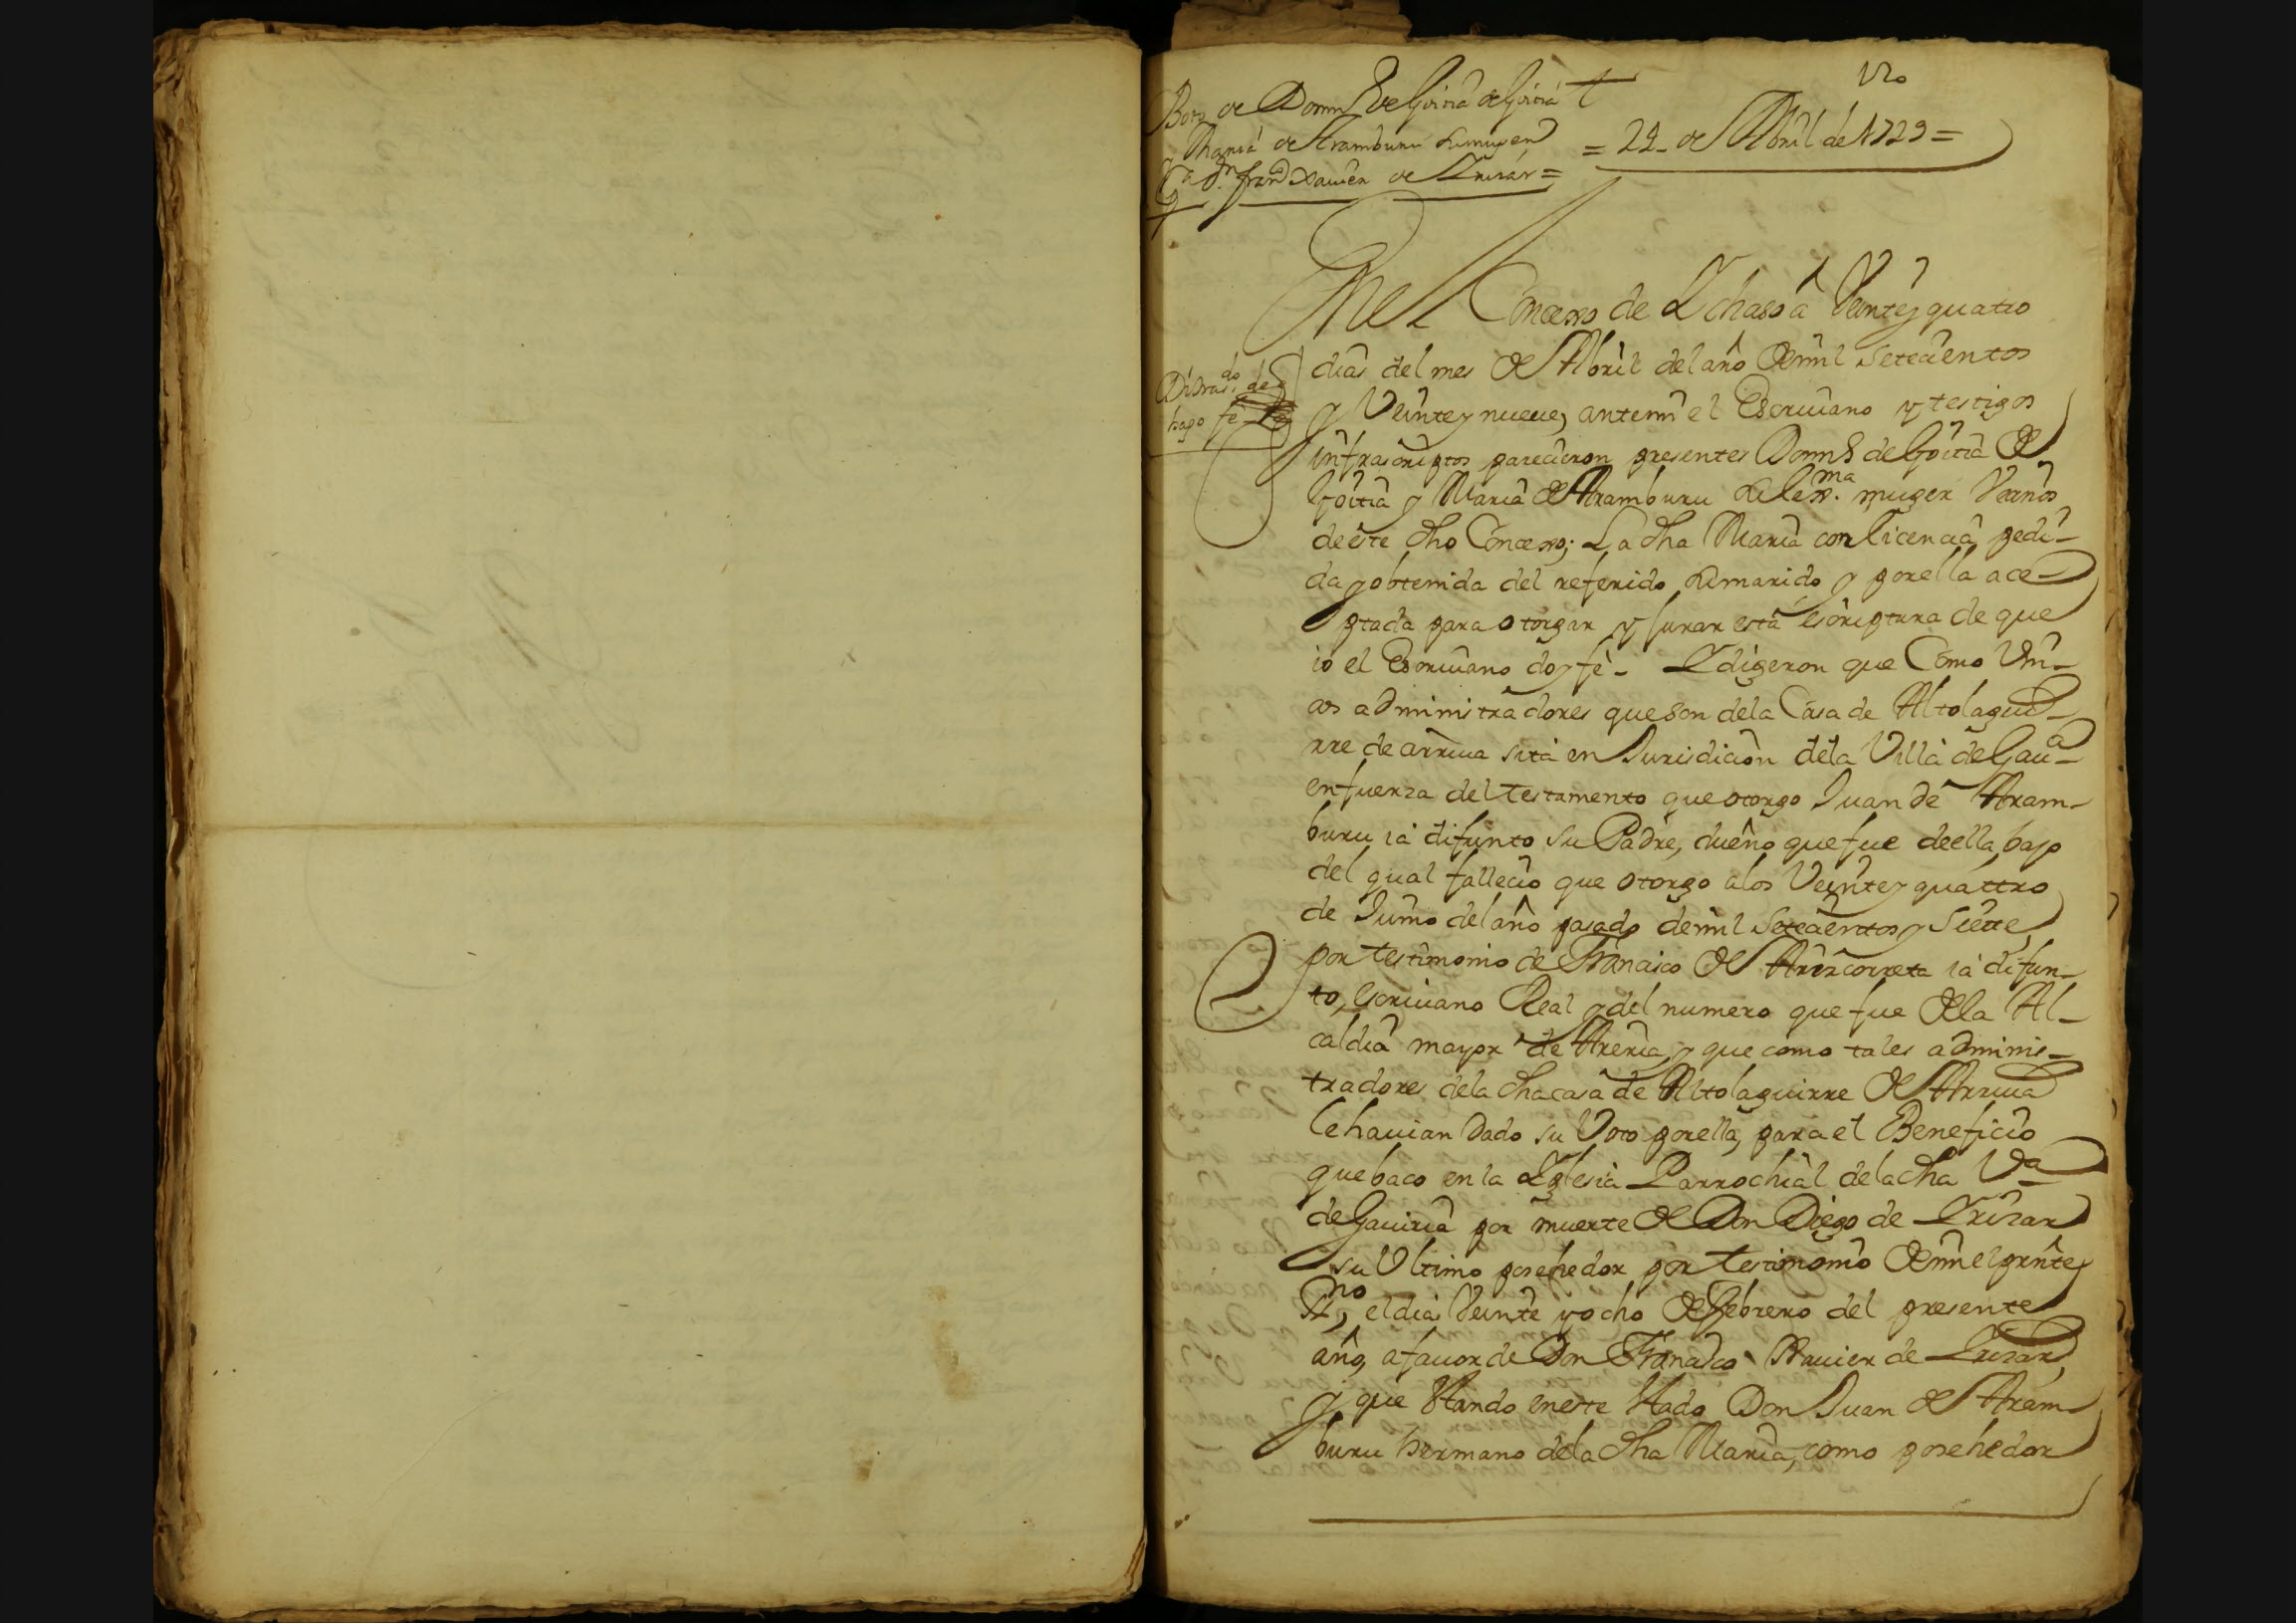 120
Boto de Domingo de Goitia de Goitia
Maria de Aramburu su muger
Pa Dn. franco Xavier de Irizar =
= 24 de Abril de 1729 =
En el Concexo de Ichaso a Veinte y quatro
dias del mes de Abril del año de mil setecientos
y Veinte y nueve, ante mi el Escriuano y testigos
infrascriptos parecieron presentes Domingo de Goitia de
Goitia y Maria de Aramburu su lexma. muger Vecinos
de este dho Concexo; La dha Maria con licencia pedi-
da y obtenida del referido su marido y por ella ace-
ptada para otorgar y jurar esta escriptura de que
io el Escriuano doy fe - Y digeron que Como Vni-
cos administradores que son dela Casa de Altolagui-
rre de arriua sita en Jurisdicion dela Villa de Gaui-a
en fuerza del testamento que otorgo Juan de Aram-
buru ia difunto su Padre, dueño que fue de ella, bajo
del qual fallecio que otorgo alos Veinte y quattro
de Junio del año pasado de mil Setecientos y Siette
por testimonio de Francisco de Arizcorreta ia difun-
to, escriuano Real y del numero que fue dela Al-
caldia mayor de Areria, y que como tales adminis-
tradores dela dha casa de Altolaguirre de Arriua
le hauian dado su Voto por ella, para el Beneficio
que baco en la Yglesia Parrochial dela dha Va
de Gauiria por muerte de Don Diego de Irizar
su Vltimo posehedor por testimonio de mi el prnte
Sno, el dia Veinte y ocho de Febrero del presente
año, a favor de Don Francisco Xauier de Irizar,
y que stando en este stado Don Juan de Aram-
buru hermano dela dha Maria, como posehedor
hago fe